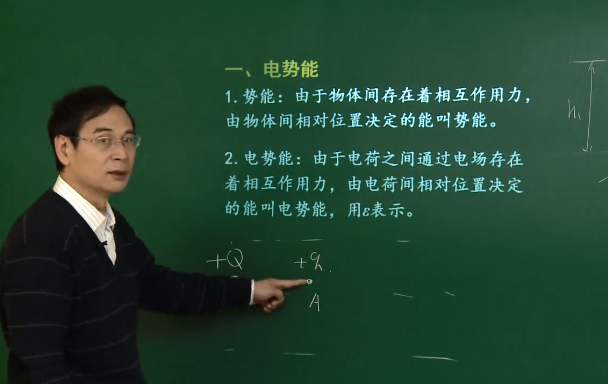 一、电势能
1. 势能：由于物体间存在着相互作用力，
由物体间相对位置决定的能叫势能。
2. 电势能：由于电荷之间通过电场存在
着相互作用力，由电荷间相对位置决定
的能叫电势能，用ε表示。
h₁
+Q +q
A